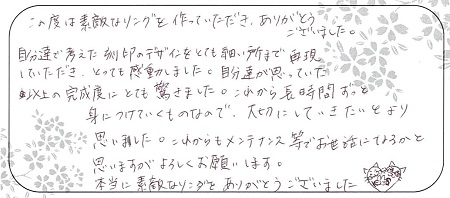 この度は素敵なリングを作っていただき、ありがとう
ございました。
自分達で考えた刻印のデザインをとても細い所まで再現
していただき、とっても感動しました。自分達が思っていた
以上の完成度にとても驚きました。これから長時間ずっと
身につけていくものなので、大切にしていきたいとより
思いました。これからもメンテナンス等でお世話になるかと
思いますがよろしくお願いします。
本当に素敵なリングをありがとうございました